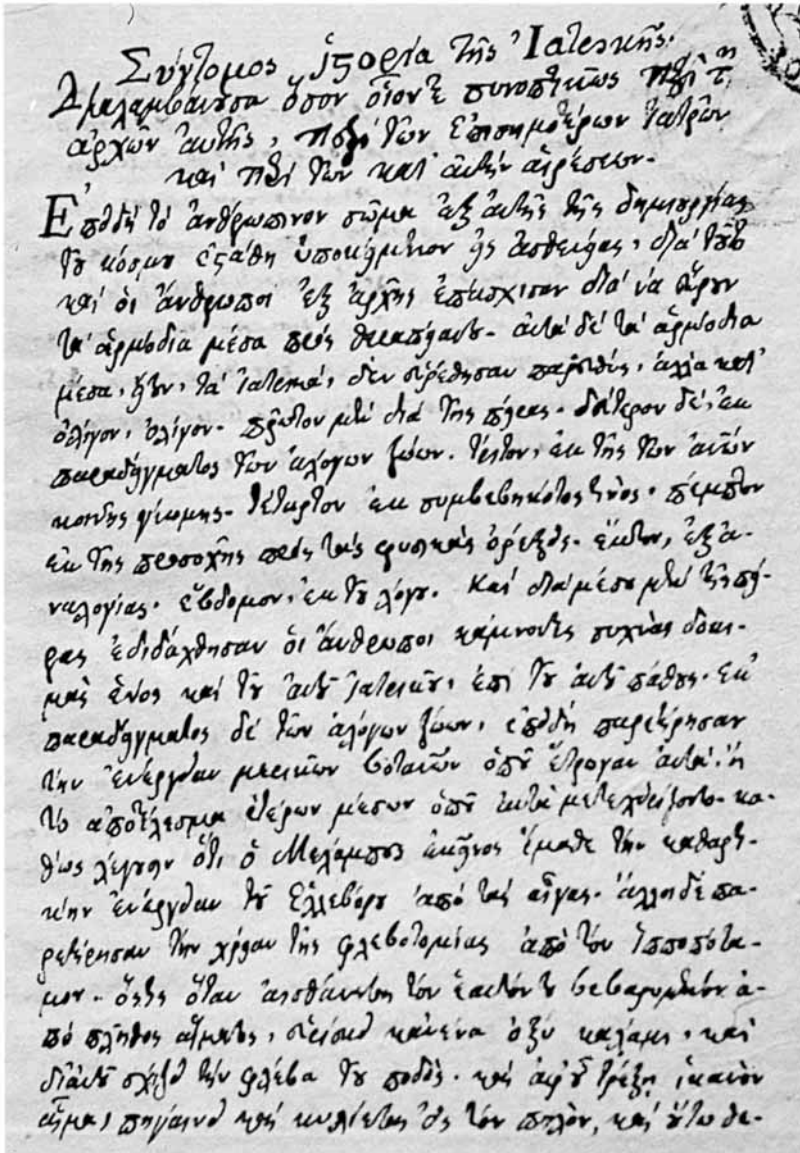 Σύντομος ἱστορία τῆς Ἰατρικῆς.
Διαλαμβάνουσα ὅσον οἷόντε συνοπτικῶς περὶ τ
ἀρχῶν αὐτῆς, περὶ τῶν ἐπισημοτέρων ἰατρῶν
καὶ περὶ τῶν κατ' αὐτὴν αἱρέσεων.
Ἐπειδὴ τὸ ἀνθρώπινον σῶμα ἐξ αὐτῆς τῆς δημιουργίας
τοῦ κόσμου ἐστάθη ὑποκείμενον εἰς ἀσθενείας, διὰ τοῦτο
καὶ οἱ ἄνθρωποι ἐξ ἀρχῆς ἐπάσχισαν διὰ νὰ εὕρουν
τὰ ἁρμόδια μέσα πρὸς θεραπείαν. αὐτὰ δὲ τὰ ἁρμόδια
μέσα, ἤγουν, τὰ ἰατρικὰ, δὲν εὑρέθησαν παρευθύς, ἀλλὰ κατ'
ὀλίγον, ὀλίγον. πρῶτον μὲν διὰ τῆς πείρας. δεύτερον δὲ, ἐκ
παραδείγματος τῶν ἀλόγων ζώων. τρίτον, ἐκ τῆς τῶν αὐτῶν
κοινῆς γνώμης. τέταρτον ἐκ συμβεβηκότος τινὸς. πέμπτον
ἐκ τῆς προσοχῆς πρὸς τὰς φυσικὰς ὀρέξεις. ἕκτον, ἐξ ἀ-
ναλογίας. ἕβδομον, ἐκ τοῦ λόγου. Καὶ διὰ μέσου μὲν τῆς πεί-
ρας ἐδιδάχθησαν οἱ ἄνθρωποι κάμνοντες συχνὰς δοκι-
μὰς ἑνὸς καὶ τοῦ αὐτοῦ ἰατρικοῦ, ἐπὶ τοῦ αὐτοῦ πάθους. Ἐκ
παραδείγματος δὲ τῶν ἀλόγων ζώων, ἐπειδὴ παρετήρησαν
τὴν ἐνέργειαν μερικῶν βοτανῶν ὁποῦ ἔτρογαν αὐτὰ. ἢ
τὸ ἀποτέλεσμα ἑτέρων μέσων ὁποῦ αὐτὰ μετεχειρίζοντο. κα-
θὼς λέγουν ὅτι ὁ Μελάμπους ἐκεῖνος ἔμαθε τὴν καθαρτι-
κὴν ἐνέργειαν τοῦ Ἑλλεβόρου ἀπὸ τὰς αἶγας. ἄλλοι δὲ πα-
ρετήρησαν τὴν χρῆσιν τῆς φλεβοτομίας ἀπὸ τὸν ἱπποπότα-
μον. ὅστις ὅταν αἰσθάνεται τὸν ἑαυτόν του βεβαρυμένον ἀ-
πὸ πλῆθος αἵματος, εὑρίσκει κανένα ὀξὺ καλάμι, καὶ
δι' αὐτοῦ σχίζει τὴν φλέβα τοῦ ποδὸς. καὶ ἀφ' οὗ τρέξῃ ἱκανὸν
αἷμα, πηγαίνει καὶ κυλίεται εἰς τὸν πηλὸν, καὶ οὕτω θε-